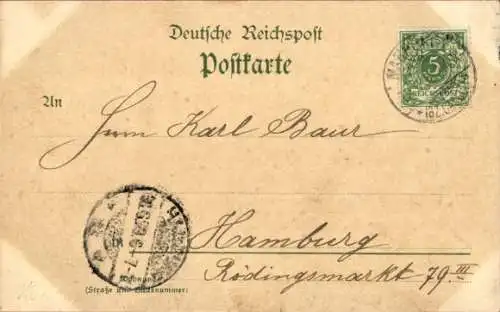 Deutsche Reichspost
Postkarte
5
REICHSPOST
An
Herrn Karl Baur
in
Hamburg
Rödingsmarkt 79 III
Wohnung
(Straße und Hausnummer)